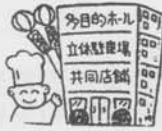 多目的ホール
立体駐車場
共同店舗